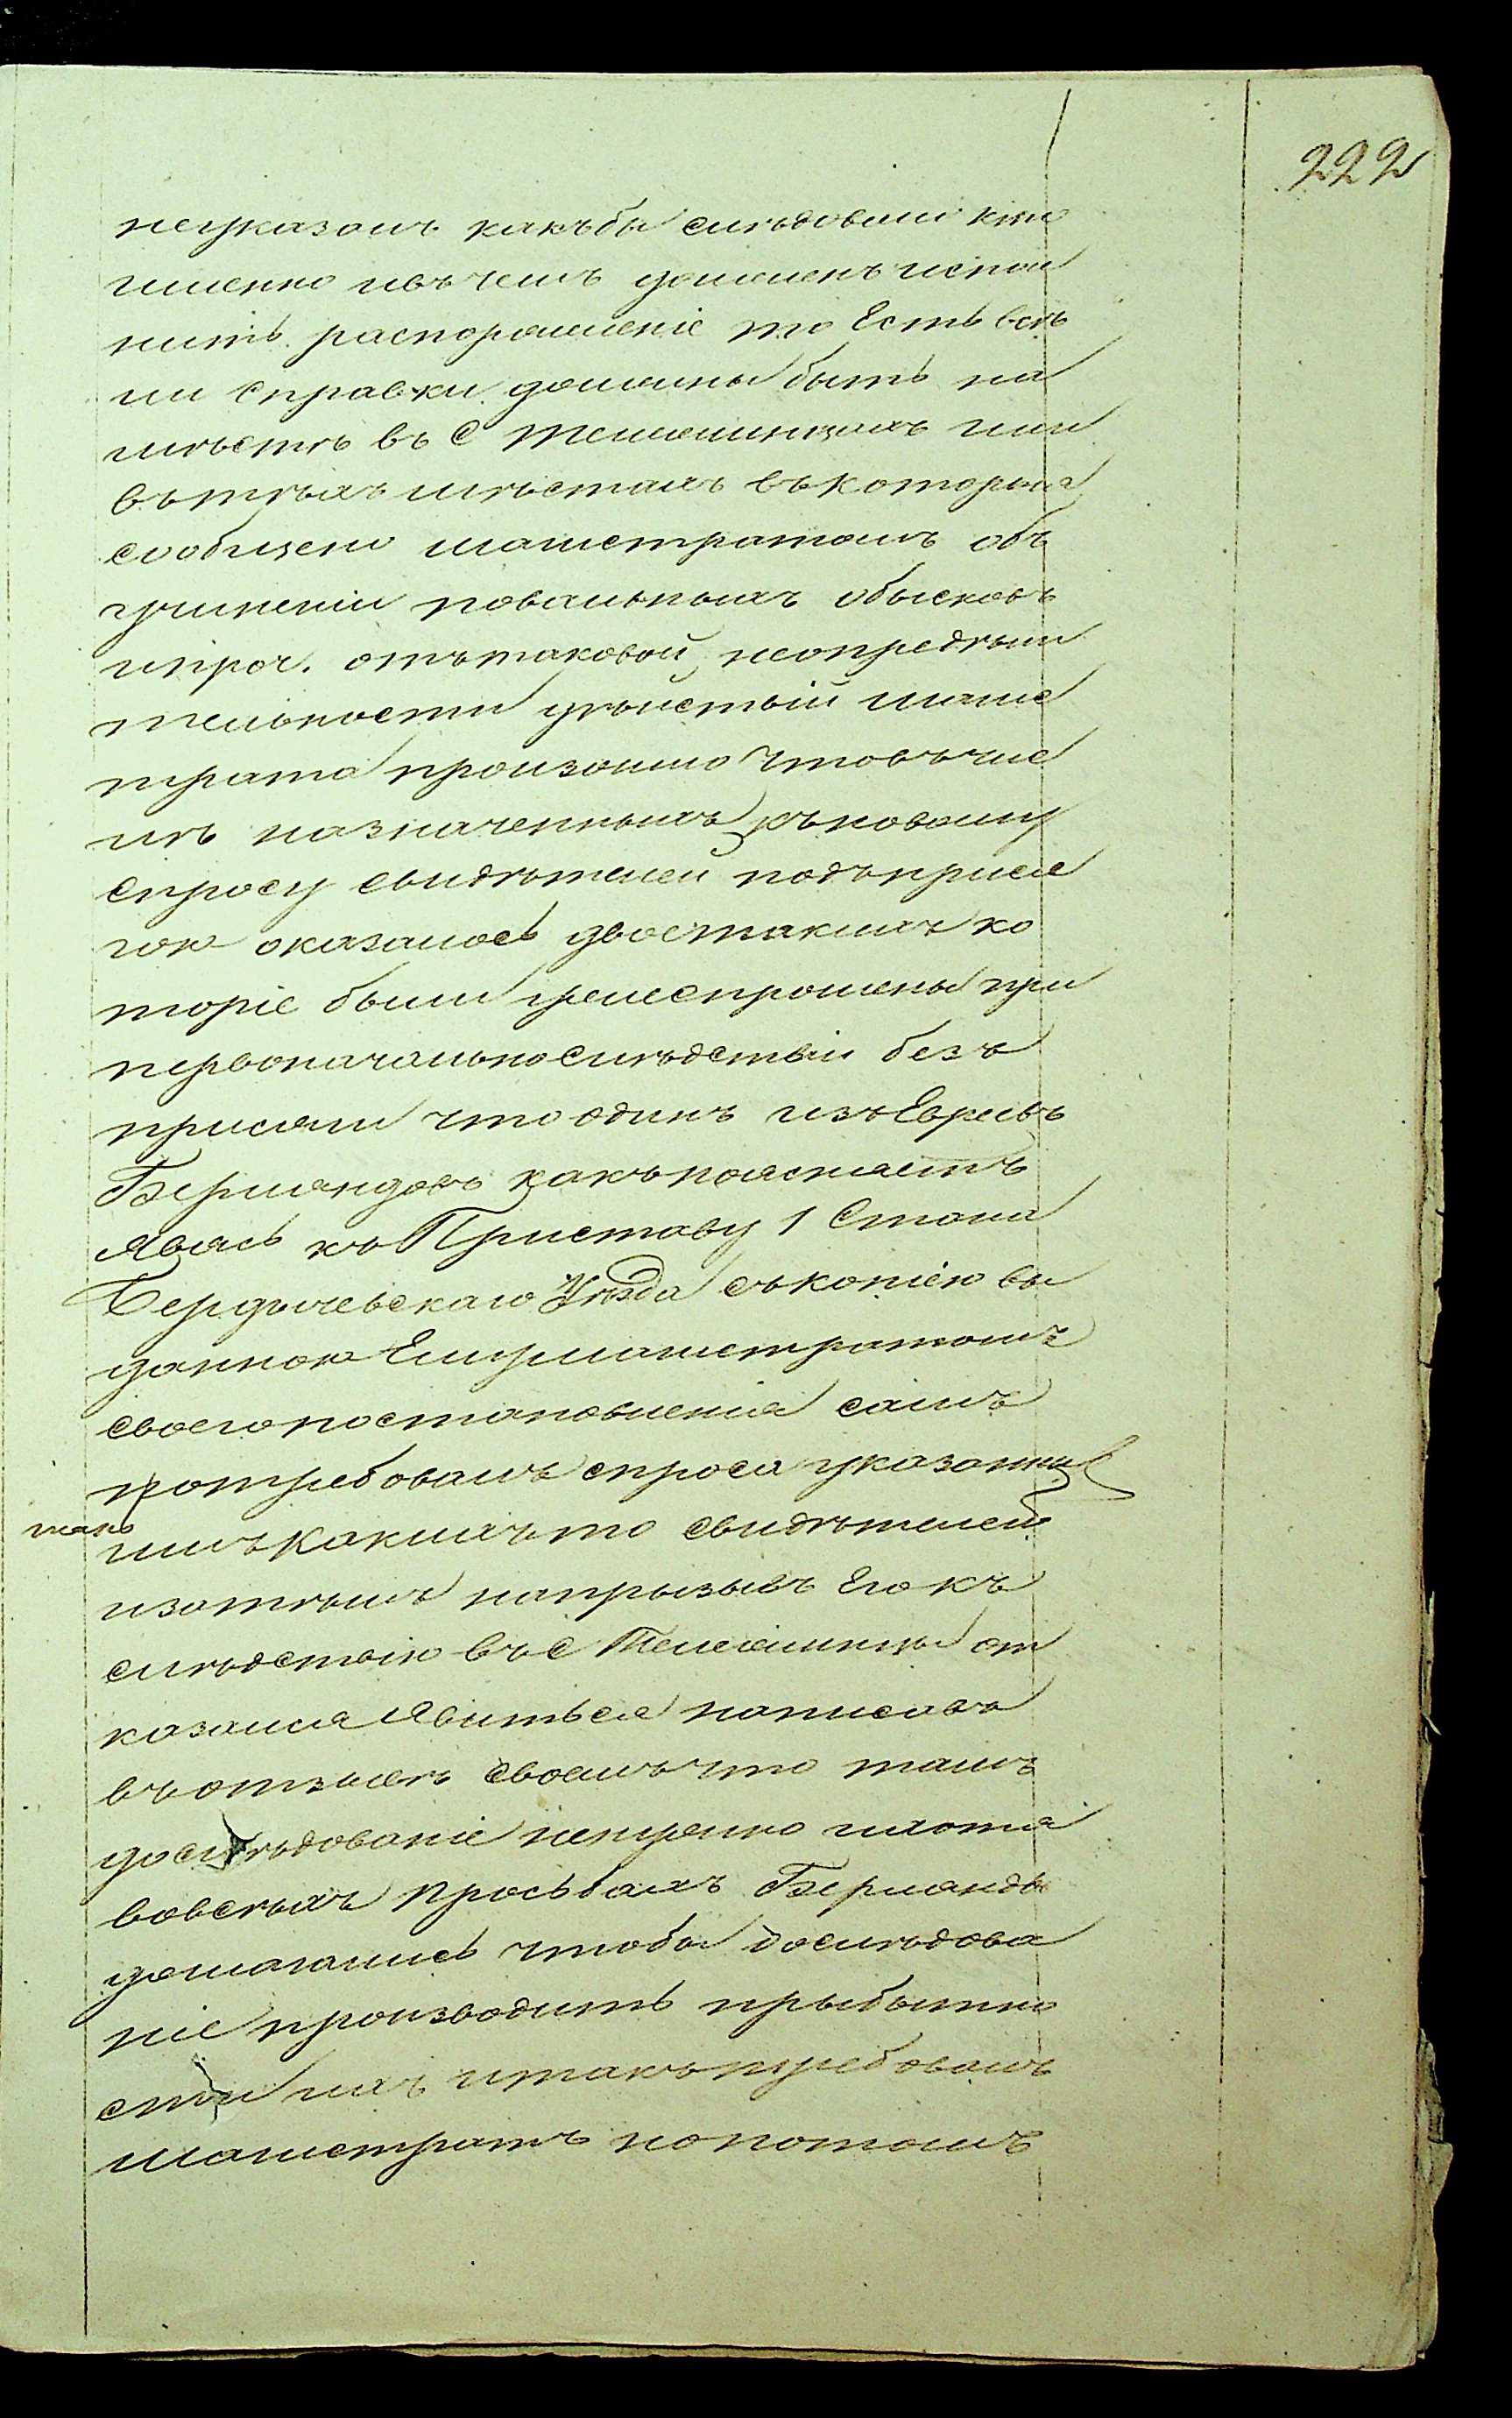 222
неуказавъ какъбы слѣдовало кто
именно ивъ чемъ долженъ испол
нить распоряженіе то Есть всѣ
ли справки должны быть на
мѣстѣ въ С Тележинцахъ или
вътѣхъ мѣстахъ въкоторыя
сообщено магистратомъ объ
учиненіи повальныхъ обысковъ
ипроч. отътаковой неопредѣли
тельности дѣйствій магис
трата произошло Чтовъчис
лѣ назначенныхъ къновому
спросу свидѣтелей подъприся
гою оказалось двоетакихъ ко
торіе были ужеспрошены при
первоначальнослѣдствіи безъ
присяги что одинъ изъЕвреевъ
Берляндовъ какъпоясняетъ
Явясь къПриставу 1 Стана
Бердычевскаго Уѣзда съкопіею вы
данною Емумагистратомъ
своегопостановленія самъ
потребовалъ спроса указанны
имъ какихъто свидѣтелей
изатѣмъ напризывъ Его къ
слѣдствію въ С Тележинцы от
казался Явиться написавъ
въотзывѣ своемъчто тамъ
дослѣдованіе ненужно ихотя
вовсѣхъ просьбахъ Берлянды
домагались чтобы дослѣдова
ніе производить прыбытно
сти ихъ итакътребовалъ
магистратъ нопотомъ